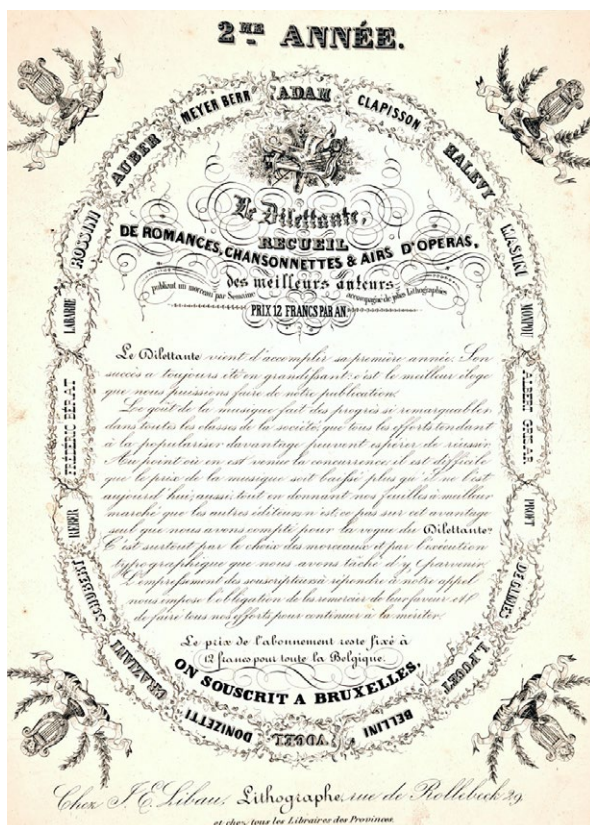 2ME ANNÉE.
ADAM
CLAPISSON
HALEVY
MASINI
MONPOU
ALBERT GRISAR
PROFT
DE GINES
L. PUGET
BELLINI
VOGEL
DONIZETTI
GRAZIANI
SCHUBERT
REBER
FRÉDÉRIC BÉRAT
LABARRE
ROSSINI
AUBER
MEYER BERR
Le Dilettante,
RECUEIL
DE ROMANCES, CHANSONNETTES & AIRS D'OPERAS,
des meilleurs auteurs
publiant un morceau par Semaine accompagné de jolies Lithographies
PRIX 12 FRANCS PAR AN.
Le Dilettante vient d'accomplir sa première année. Son
succès a toujours été en grandissant: c'est le meilleur éloge
que nous puissions faire de notre publication.
Le goût de la musique fait des progrès si remarquables
dans toutes les classes de la société, que tous les efforts tendant
à la populariser davantage peuvent espérer de réussir.
Au point où en est venue la concurrence, il est difficile
que le prix de la musique soit baissé plus qu'il ne l'est
aujourd'hui; aussi, tout en donnant nos feuilles à meilleur
marché que les autres éditeurs, n'est ce pas sur cet avantage
seul que nous avons compté pour la vogue du Dilettante:
C'est surtout par le choix des morceaux et par l'exécution
typographique que nous avons tâché d'y parvenir.
L'empressement des souscripteurs à répondre à notre appel
nous impose l'obligation de les remercier de leur faveur et
de faire tous nos efforts pour continuer à la mériter.
Le prix de l'abonnement reste fixé à
12 francs pour toute la Belgique.
ON SOUSCRIT A BRUXELLES,
Chez J. E. Libau, Lithographe, rue de Rollebeek 29.
et chez tous les Libraires des Provinces.